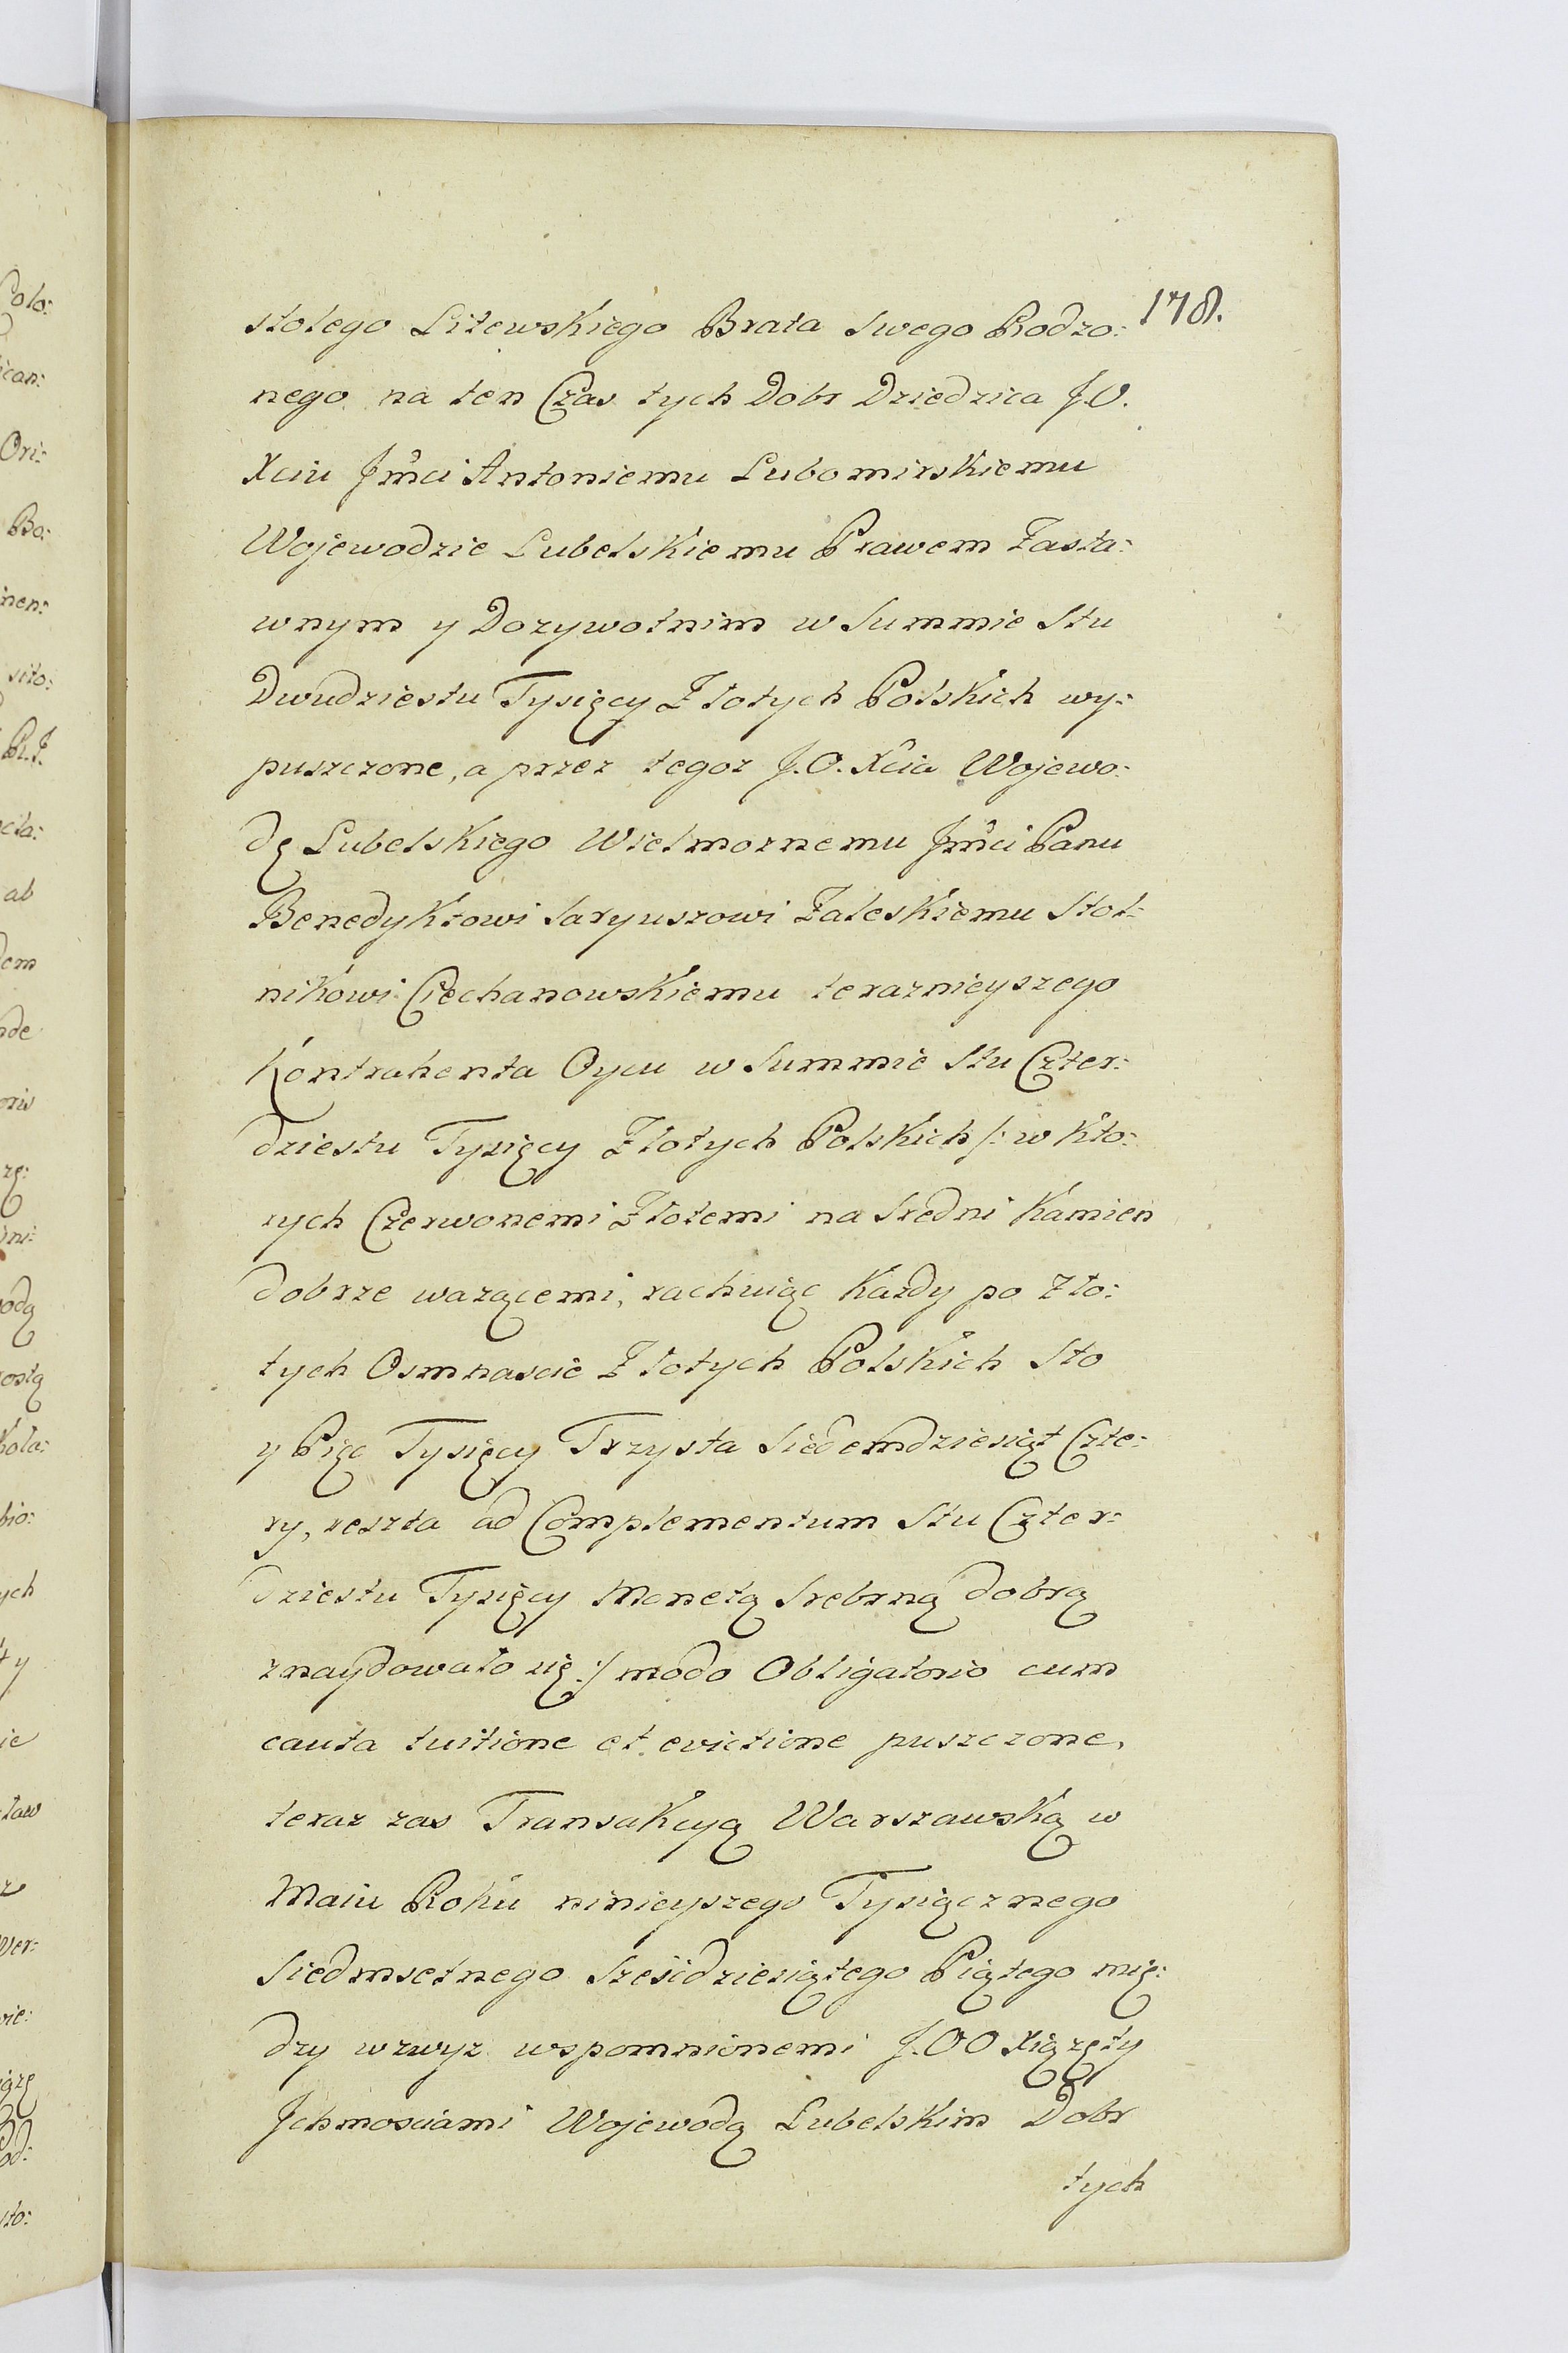 178.
stolego Litewskiego Brata swego Rodzo:
nego na ten Czas tych Dobr Dziedzica J.O.
Xciu Jmci Antoniemu Lubomirskiemu
Wojewodzie Lubelskiemu Prawem Zasta:
wnym y Dozywotnim w Summie Stu
Dwudziestu Tysięcy Złotych Polskich wy:
puszczone, a przez tegoz J.O. Xcia Wojewo:
dę Lubelskiego Wielmoznemu Jmci Panu
Benedyktowi Saryuszowi Zaleskiemu Stol:
nikowi Ciechanowskiemu teraznieyszego
Kontrahenta Oycu w Summie Stu Czter:
dziestu Tysięcy Złotych Polskich /: w kto:
rych Czerwonemi Złotemi na Sredni Kamien
dobrze wazącemi, rachuiąc Kazdy po Zło:
tych Osmnascie Złotych Polskich Sto
y Pięc Tysięcy Trzysta Siedemdziesiąt Czte:
ry, reszta ad Complementum Stu Czter:
dziestu Tysięcy Monetą Srebrną dobrą
znaydowało się :/ modo Obligatorio cum
cauta tuitione et evictione puszczone,
teraz zas Transakcyą Warszawską w
Maiu Roku ninieyszego Tysiącznego
Siedmsetnego Sześcdziesiątego Piątego mię:
dzy wzwyz wspomnionemi J.OO Xiązęty
Jchmosciami Wojewodą Lubelskim Dobr
tych